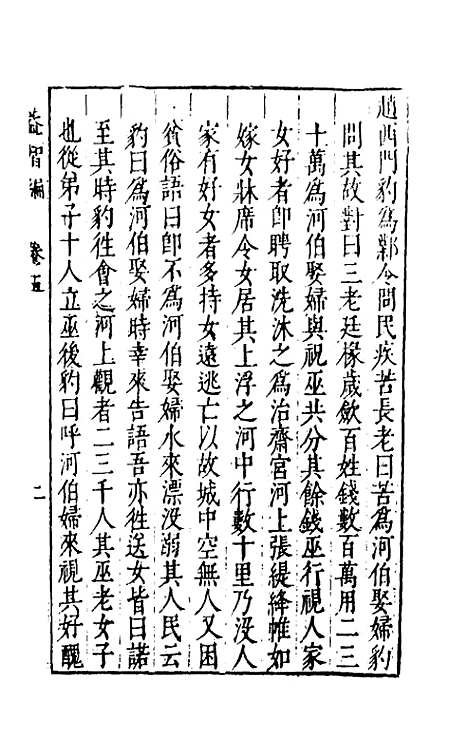 趙西門豹爲鄴令問民疾苦長老曰苦爲河伯娶婦豹
問其故對曰三老廷椽歲歛百姓錢數百萬用二三
十萬爲河伯娶婦與視巫共分其餘錢巫行視人家
女好者卽聘取洗沐之爲治齋宮河上張緹絳帷如
嫁女牀席令女居其上浮之河中行數十里乃沒人
家有好女者多持女遠逃亡以故城中空無人又困
貧俗語曰卽不爲河伯娶婦水來漂沒弱其人民云
豹曰爲河伯娶婦時幸來告語吾亦徃送女皆曰諾
至其時豹徃會之河上觀者二三千人其巫老女子
也從弟子十人立巫後豹曰呼河伯婦來視其好醜
益智編 卷五 二